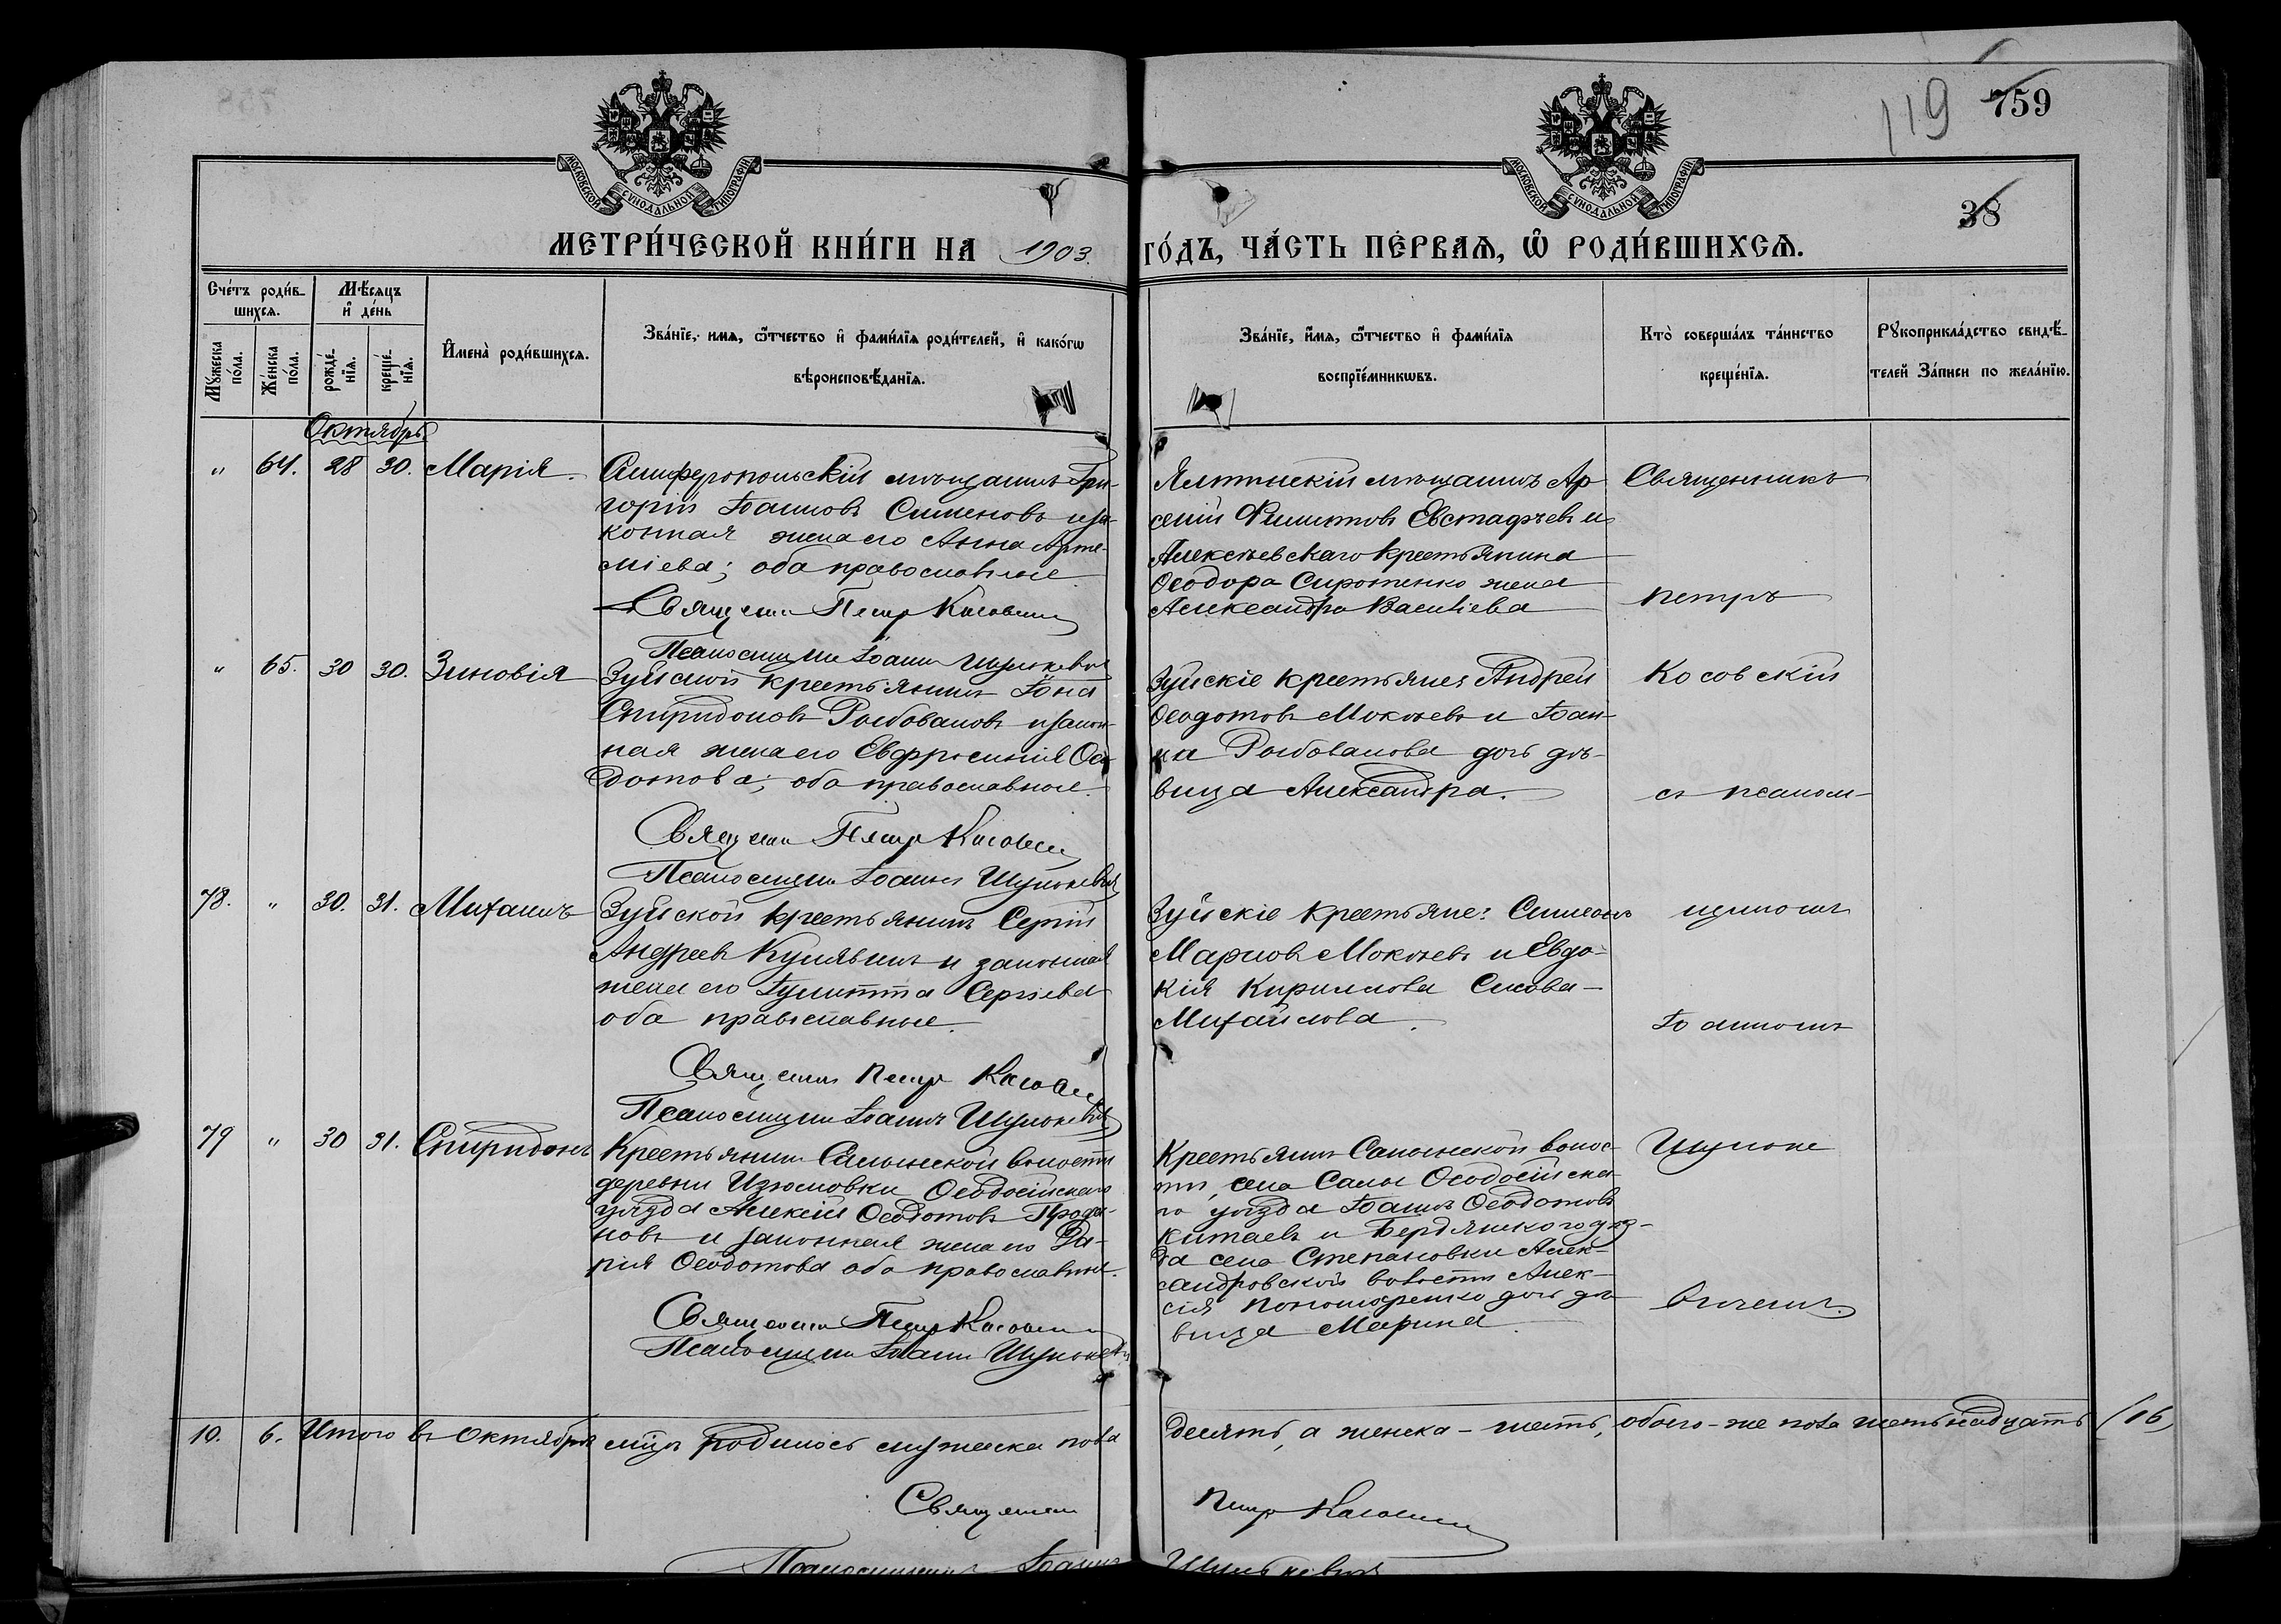 119 759
38
МОСКОВСКОЙ СѴНОДАЛЬНОЙ ТИПОГРАФІИ
МОСКОВСКОЙ СѴНОДАЛЬНОЙ ТИПОГРАФІИ
МЕТРИ́ЧЕСКОЙ КНИ́ГИ НА 1903. ГО́ДЪ, ЧА́СТЬ ПЕ́РВАѦ, Ѽ РОДИ́ВШИХСѦ.
Сче́тъ роди́в-
шихсѧ.
Мꙋжеска по́ла.
Же́нска по́ла.
Мѣ́сѧцъ
и҆ де́нь
рожде́-
нїѧ.
креще́-
нїѧ.
И҆мена̀ роди́вшихсѧ.
Зва́нїе, имѧ, ѻ҆́тчество и҆ фами́лїѧ роди́телей, и҆ како́гѡ
вѣроисповѣ́данїѧ.
Зва́нїе, и҆́мѧ, ѻ҆́тчество и҆ фами́лїѧ
воспрїе́мникѡвъ.
Кто̀ соверша́лъ та́инство
креще́нїѧ.
Рꙋкоприкла́дство свидѣ́-
телей За́писи по жела́нїю.
Октябрь
" 64. 28 30. Марія.
Симферопольскій мѣщанинъ Гри-
горій Іоанновъ Сименовъ и за-
конная жена его Анна Арте-
міева; оба православные
Священн Петр Косовский
Псаломщикъ Іоаннъ Шулькевич
Ялтинскій мѣщанинъ Ар
сеній Филиповъ Евстафьевъ и
Алексѣевскаго крестьянина
Ѳеодора Сиротенко жена
Александра Васильева
Священникъ
Петръ
" 65. 30 30. Зиновія
Зуйской крестьянинъ Іона
Спиридоновъ Рыбовановъ и закон-
ная жена его Евфросинія Ѳео
дотова; оба православные.
Священн Петр Косовский
Псаломщикъ Іоаннъ Шулькевич
Зуйскіе крестьяне: Андрей
Ѳеодотовъ Мокочевъ и Іоан-
на Рыбованова дочь дѣ-
вица Александра.
Косовскій
съ псалом-
78. " 30. 31. Михаилъ
Зуйской крестьянинъ Сергій
Андреевъ Кулявинъ и законная
жена его Іулитта Сергіева
оба православные.
Священн Петр Косовский
Псаломщикъ Іоаннъ Шулькевич
Зуйскіе крестьяне: Симеонъ
Марковъ Мокочевъ и Евдо-
кія Кириллова
Михайлова.
щикомъ
Іоанномъ
79 " 30 31. Спиридонъ
Крестьянинъ Салынской волости
деревни Изюмовки Ѳеодосійскаго
уѣзда Алексій Ѳеодотовъ Прода-
новъ и законная жена его Да-
рія Ѳеодотова оба православные.
Священн Петр Косовский
Псаломщикъ Іоаннъ Шулькевич
Крестьянинъ Салынской волос-
ти, села Салы Ѳеодосійска-
го уѣзда Іоаннъ Ѳеодотовъ
Китаевъ и Бердянскаго уѣз-
да села Степановки Алек-
сандровской волости Алек-
сія Пономаренко дочь дѣ-
вица Марина.
Шульке
вичемъ.
10. 6. Итого въ Октябрѣ мцѣ родилось мужеска пола десять, а женска - шесть, обоего-же пола шестнадцать (16)
Священник Петр Косовский
Псаломщикъ Іоаннъ Шулькевичъ